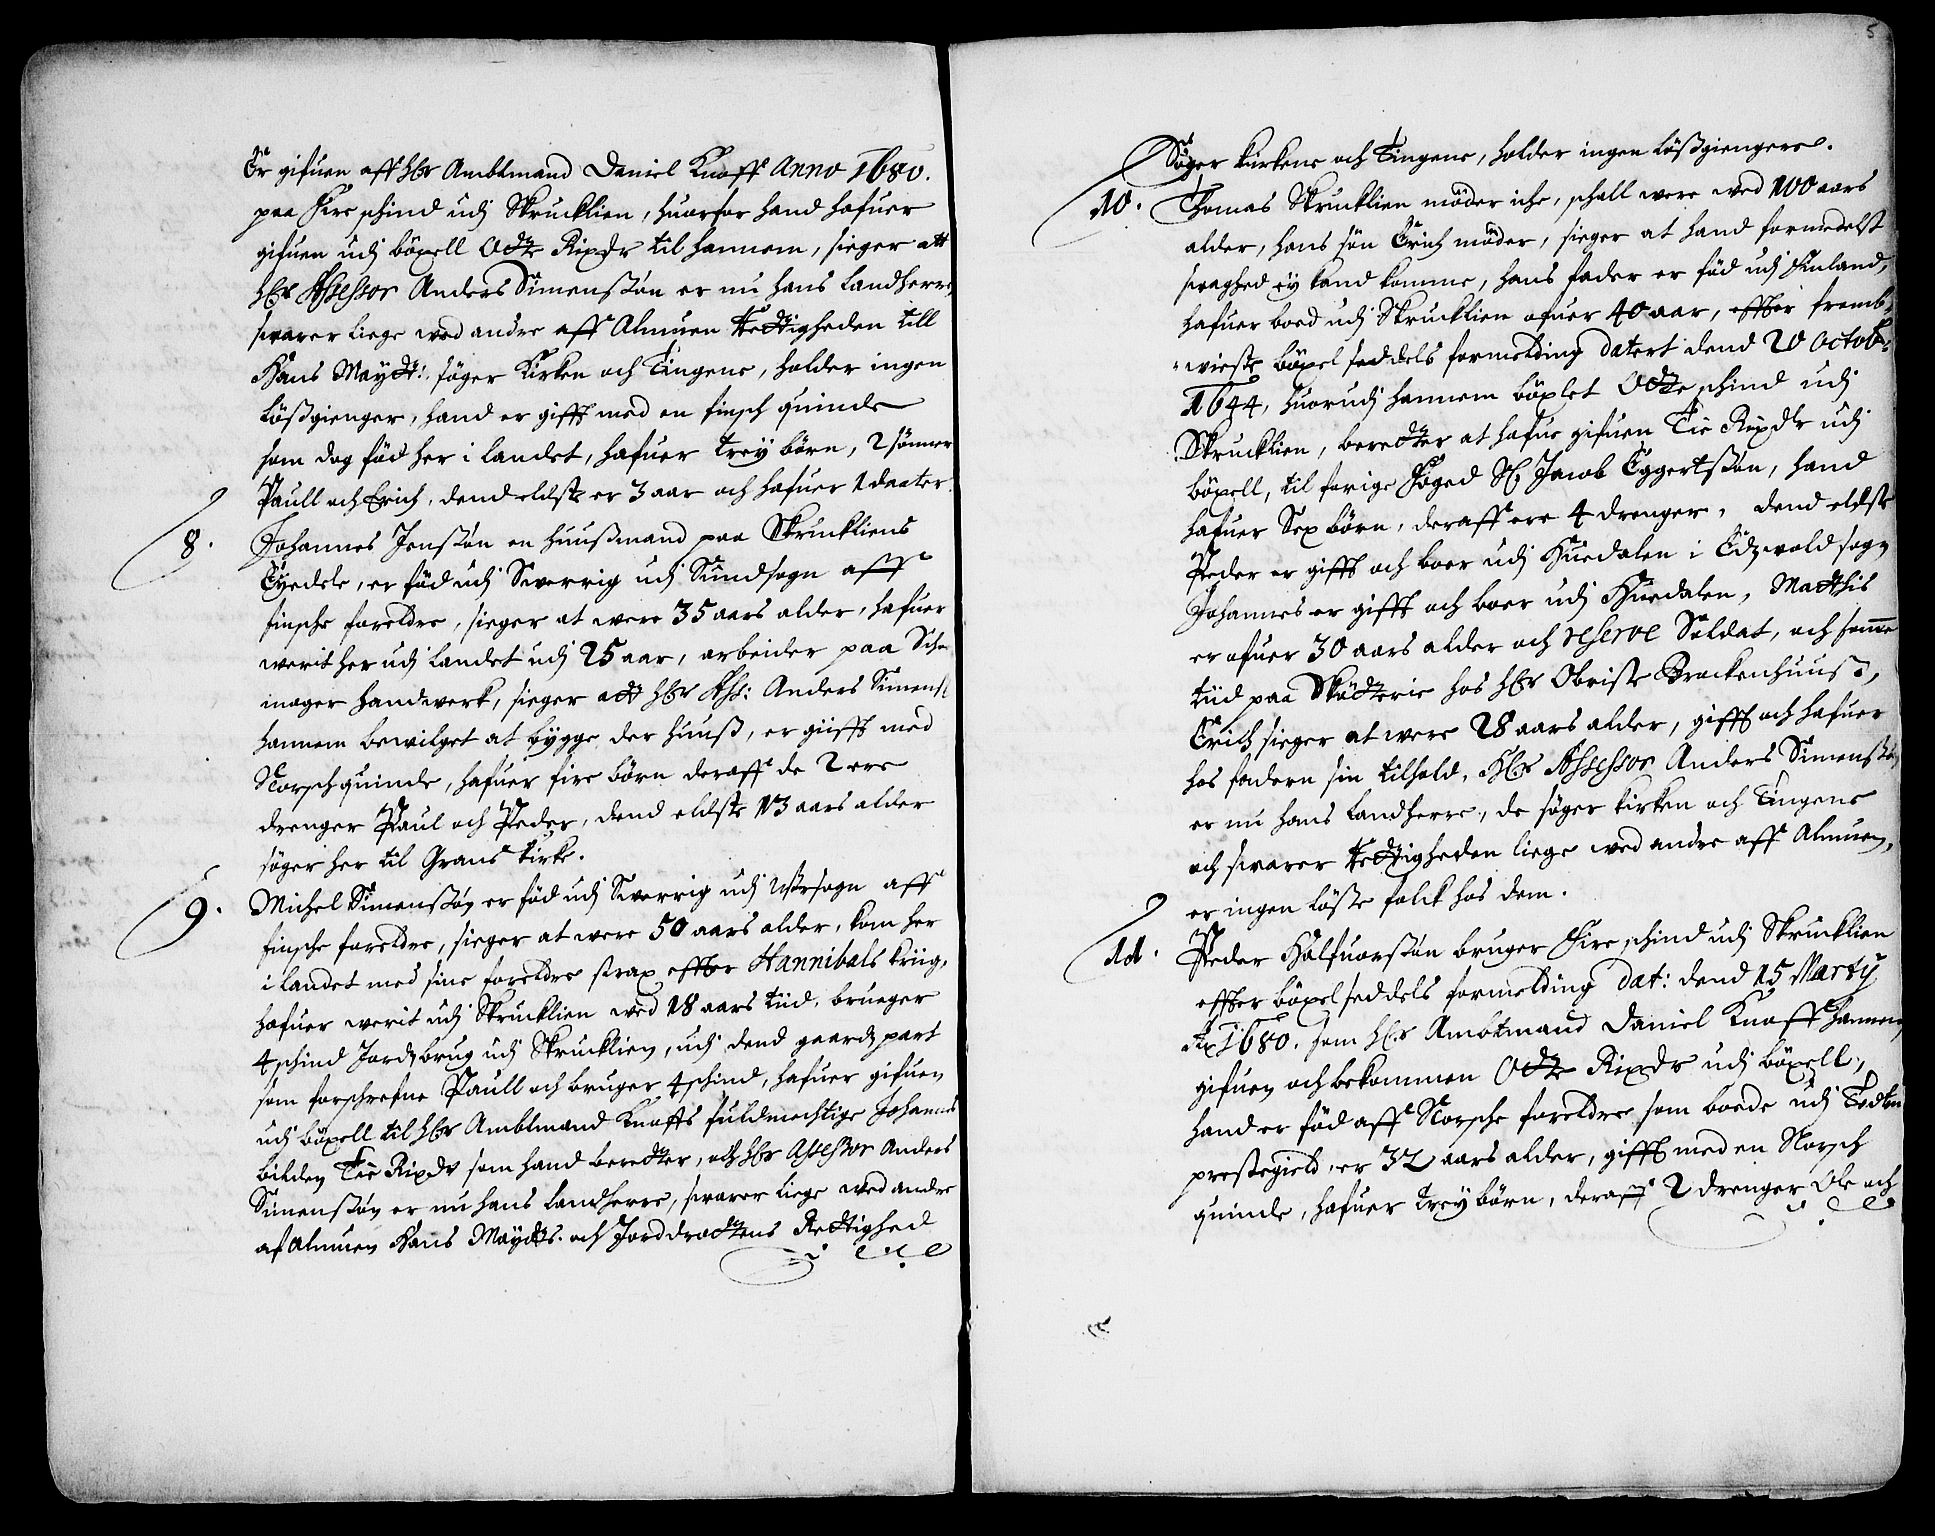 Er gifuen aff hEr Ambtmand Daniel Knoff Anno 1680.
paa Fire schind udj Skrucklien, huorfor hand hafuer
gifuen udj böxell Otte Rixdr til hannem, sieger att
hEr Assessor Anders Simensøn er nu hans Landherre,
swarer liege wed andre aff Almuen Rettigheden till
Hans Maÿtt: söger Kirken och Tingene, holder ingen
Lößgienger, hand er gifft med en finsch quinde
som dog föd her i landet, hafuer treÿ börn, 2 sønner
Paull och Erich, dend eldste er 3 aar och hafuer 1 daater.
8. Johannes Jensøn en huußmand paa Skruckliens
Eyedele, er föd udj Swerrig udj Sundsogn aff
finsche foreldre, sieger at were 35 aars alder, hafuer
werit her udj landet udj 25 aar, arbeider paa Sko-
mager handwerk, sieger att hEr Ass: Anders Simens:
hannem bewilget at bÿgge der huuß, er giifft med
Norsch quinde, hafuer fire börn deraff de 2 ere
drenger Paul och Peder, dend eldste 13 aars alder
söger her til Grans kirke.
9. Michel Simensøn er föd udj Swerrig udj  aff
finsche foreldre, sieger at were 50 aars alder, kom her
i landet med sine foreldre strax effter Hannibals kriig,
hafuer werit udj Skrucklien wed 18 aars tiid, brueger
4 schind Jordzbrug udj Skrucklien, udj dend gaardz part
som forschrefne Paull och bruger 4 schind, hafuer gifuen
udj böxell til hEr Ambtmand Knoffs fuldmechtige Johannes
bilden Tie Rixdr som hand beretter, och hEr Assessor Anders
Simensøn er nu hans Landherre, swarer liege wed andre
af Almuen Hans Maÿtts. och Jorddrottens Rettighed
5
Söger kirkene och Tingene, holder ingen lößgiengere.
10. Thomas Skrucklien möder iche, schall were wed 100 aars
alder, hans søn Erich möder, sieger at hand formedelst
swaghed eÿ kand komme, hans fader er föd udj Finland,
hafuer boed udj Skrucklien ofuer 40 aar, effter fremb-
wieste böxel seddels formelding datert dend 20 Octob:
1644, huorudj hannem böxlet Otte schind udj
Skrucklien, beretter at hafue gifuen Tie Rixdr udj
böxell, til forige Foged Sl Jacob Eggertsøn, hand
hafuer Sex börn, deraff ere 4 drenger, dend eldste
Peder er gifft och boer udj Huedalen i Edzwold sogn
Johannes er gifft och boer udj Huedalen, Matthis
er ofuer 30 aars alder och reserve Soldat, och somme
tiid paa Skötterie hos hEr Obriste Brockenhuuß,
Erich sieger at were 28 aars alder, gifft och hafuer
hos fadern sin tilhold, hEr Assessor Anders Simensøn
er nu hans Landherre, de söger kirken och Tingene
och swarer Rettigheden liege wed andre aff Almuen,
er ingen löste folck hos dem.
11. Peder Halfuorsøn bruger Fire schind udj Skrucklien
effter böxel seddels formelding dat: dend 15 Martÿ
Ao 1680. som hEr Ambtmand Daniel Knoff hannem
gifuen och bekommen Otte Rixdr udj böxell,
hand er föd aff Norsche foreldre som boede udj
prestegield, er 32 aars alder, gifft med en Norsch
quinde, hafuer treÿ börn, deraff 2 drenger Ole och